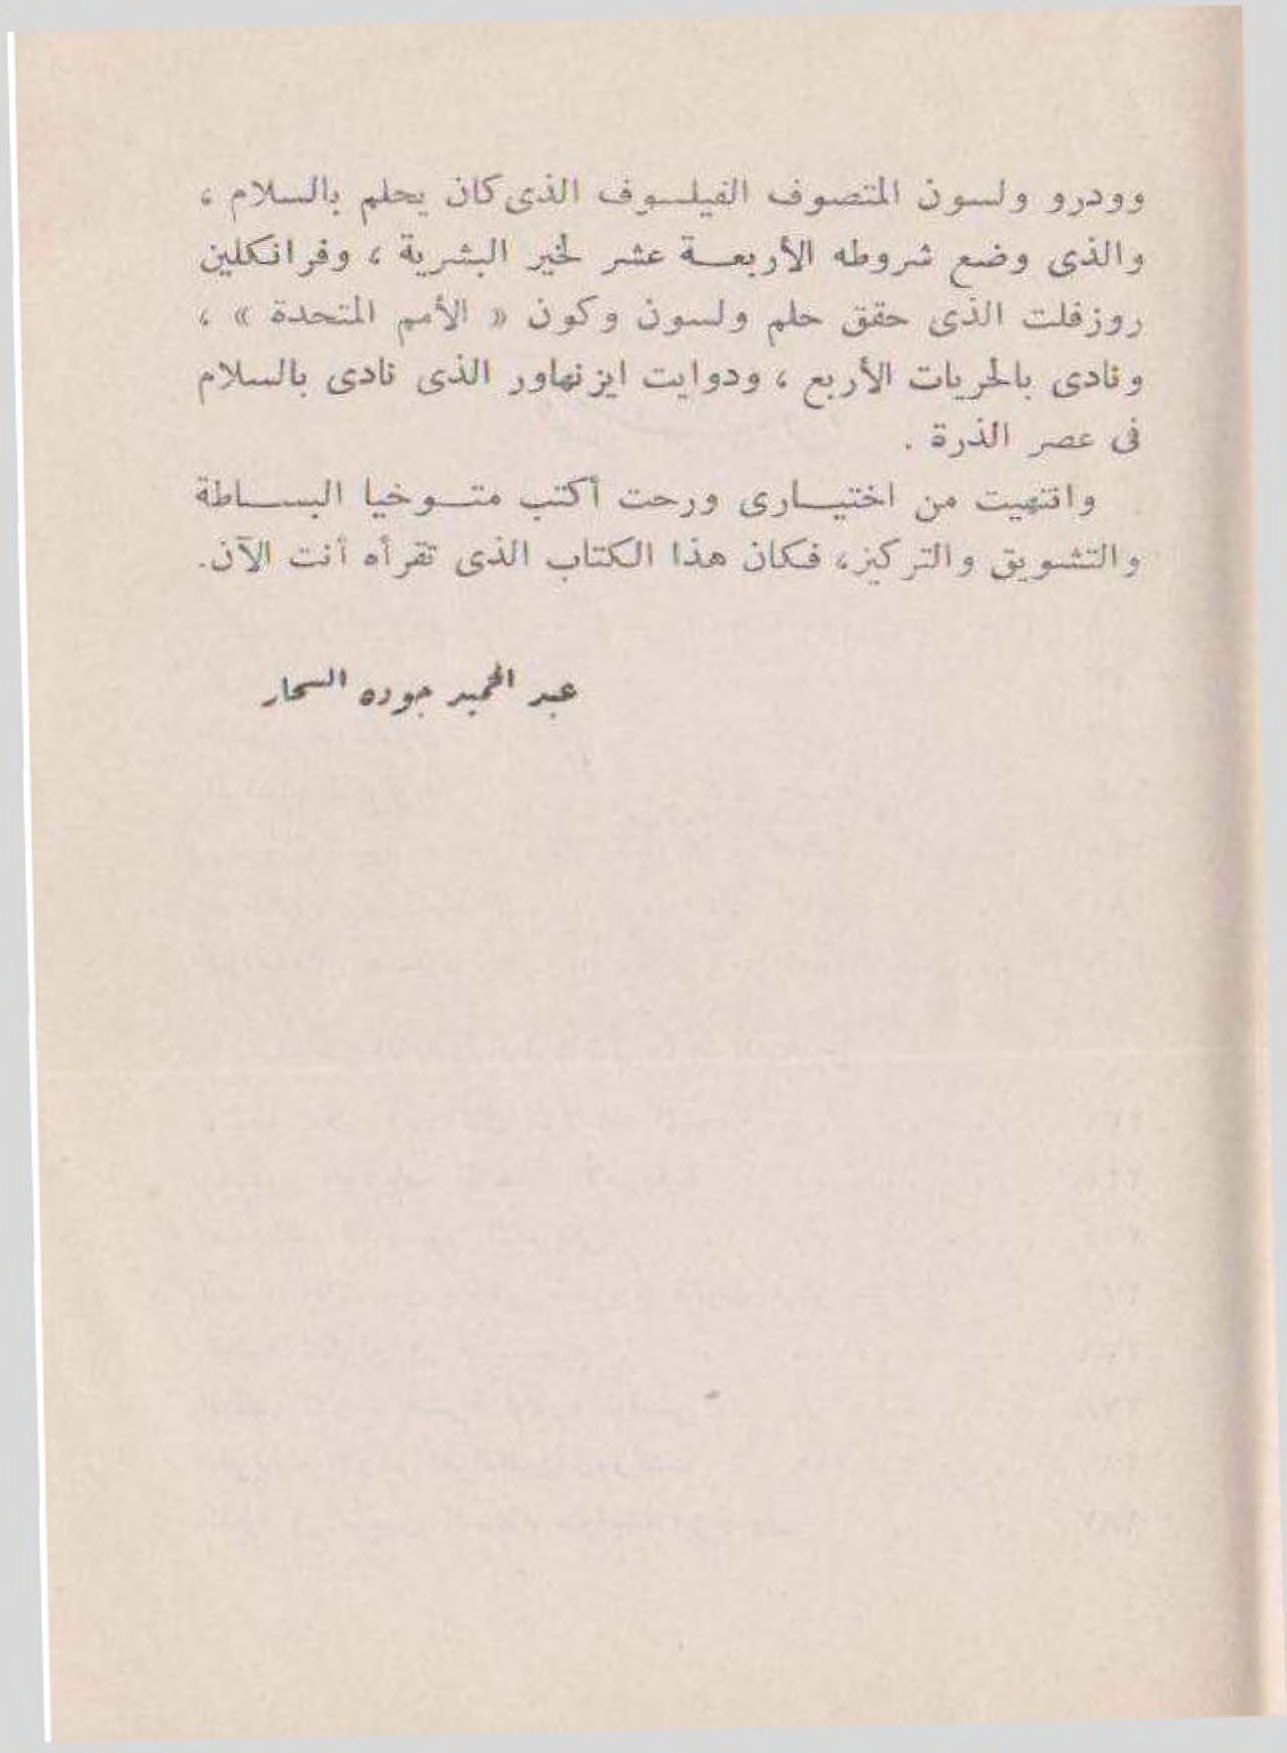 وودرو ولسون المتصوف الفيلسوف الذى كان يحلم بالسلام ،
والذى وضع شروطه الأربعة عشر لخير البشرية ، وفرانكلين
روزفلت الذى حقق حلم ولسون وكون « الأمم المتحدة » ،
ونادى بالحريات الأربع ، ودوايت ايزنهاور الذى نادى بالسلام
فى عصر الذرة .
وانتهيت من اختيارى ورحت أكتب متوخيا البساطة
والتشويق والتركيز، فكان هذا الكتاب الذى تقرأه أنت الآن.
عبد الحميد جوده السحار